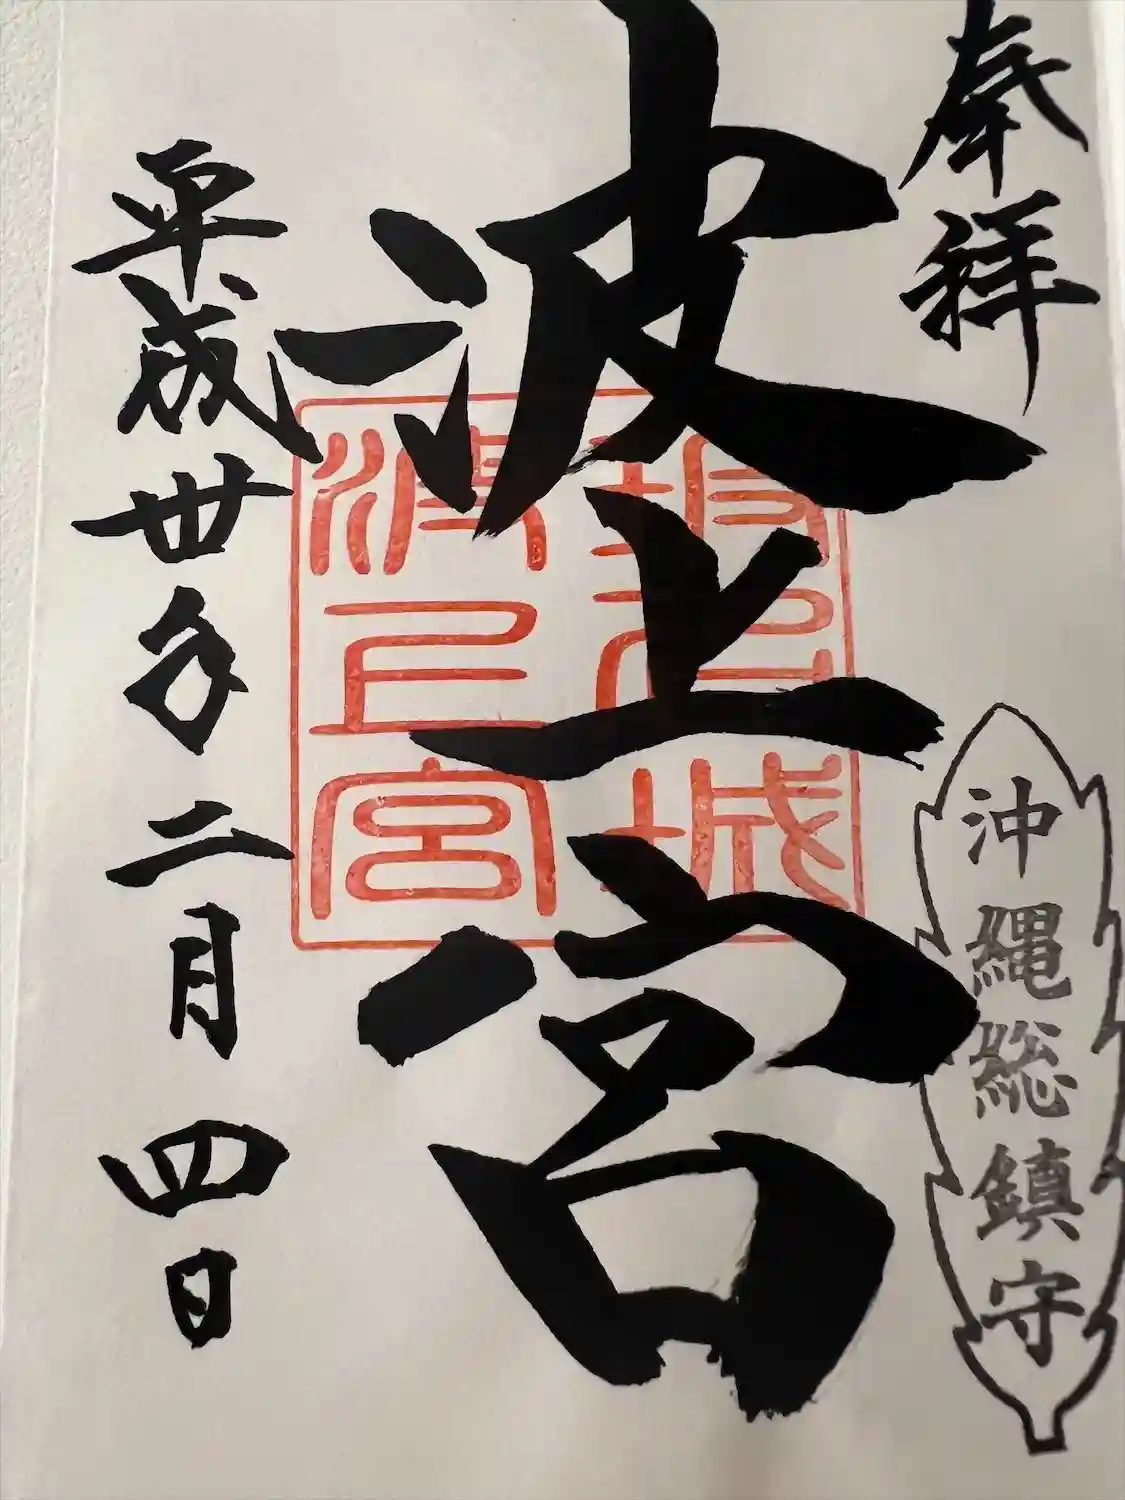 奉拝
沖縄総鎮守
波上宮
平成卅年二月四日
波上宮